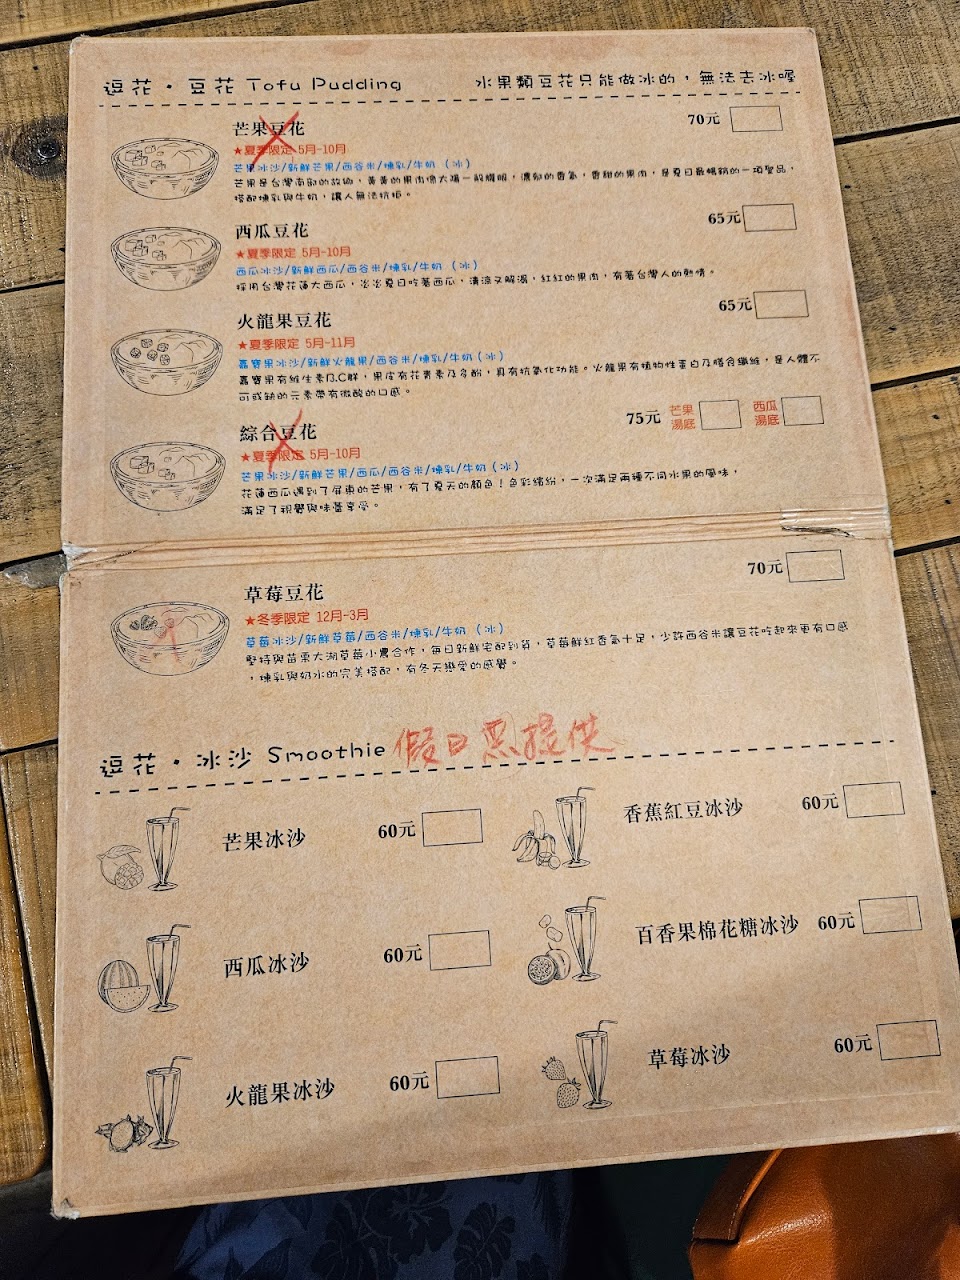 逗花・豆花 Tofu Pudding 水果類豆花只能做冰的，無法去冰喔
芒果豆花 70元
★夏季限定 5月-10月
芒果冰沙/新鮮芒果/西谷米/煉乳/牛奶（冰）
芒果是台灣南部的故鄉，黃黃的果肉像太陽一般耀眼，濃郁的香氣，香甜的果肉，是夏日最暢銷的一項聖品，
搭配煉乳與牛奶，讓人無法抗拒。
西瓜豆花 65元
★夏季限定 5月-10月
西瓜冰沙/新鮮西瓜/西谷米/煉乳/牛奶（冰）
採用台灣花蓮大西瓜，炎炎夏日吃著西瓜，清涼又解渴，紅紅的果肉，有著台灣人的熱情。
火龍果豆花 65元
★夏季限定 5月-11月
嘉寶果冰沙/新鮮火龍果/西谷米/煉乳/牛奶（冰）
嘉寶果有維生素B.C群，果皮有花青素及多酚，具有抗氧化功能。火龍果有植物性蛋白及膳食纖維，是人體不
可或缺的元素帶有微酸的口感。
綜合豆花 75元 芒果湯底 西瓜湯底
★夏季限定 5月-10月
芒果冰沙/新鮮芒果/西瓜/西谷米/煉乳/牛奶（冰）
花蓮西瓜遇到了屏東的芒果，有了夏天的顏色！色彩繽紛，一次滿足兩種不同水果的風味，
滿足了視覺與味蕾享受。
草莓豆花 70元
★冬季限定 12月-3月
草莓冰沙/新鮮草莓/西谷米/煉乳/牛奶（冰）
堅持與苗栗大湖草莓小農合作，每日新鮮宅配到貨，草莓鮮紅香氣十足，少許西谷米讓豆花吃起來更有口感
，煉乳與奶水的完美搭配，有冬天戀愛的感覺。
逗花・冰沙 Smoothie 假日 提供
芒果冰沙 60元
香蕉紅豆冰沙 60元
西瓜冰沙 60元
百香果棉花糖冰沙 60元
火龍果冰沙 60元
草莓冰沙 60元